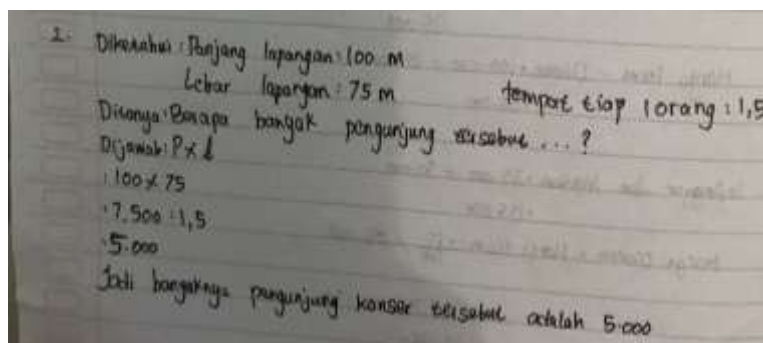 2. Diketahui : Panjang lapangan : 100 m
Lebar lapangan : 75 m tempat tiap 1 orang : 1,5
Ditanya : Berapa banyak pengunjung tersebut ... ?
Dijawab : P x l
: 100 x 75
: 7.500 : 1,5
: 5.000
Jadi banyaknya pengunjung konser tersebut adalah 5.000